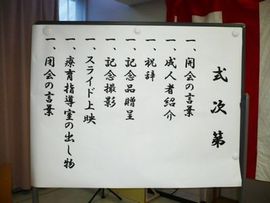 式次第
一、開会の言葉
一、成人者紹介
一、祝辞
一、記念品贈呈
一、記念撮影
一、スライド上映
一、療育指導室の出し物
一、閉会の言葉